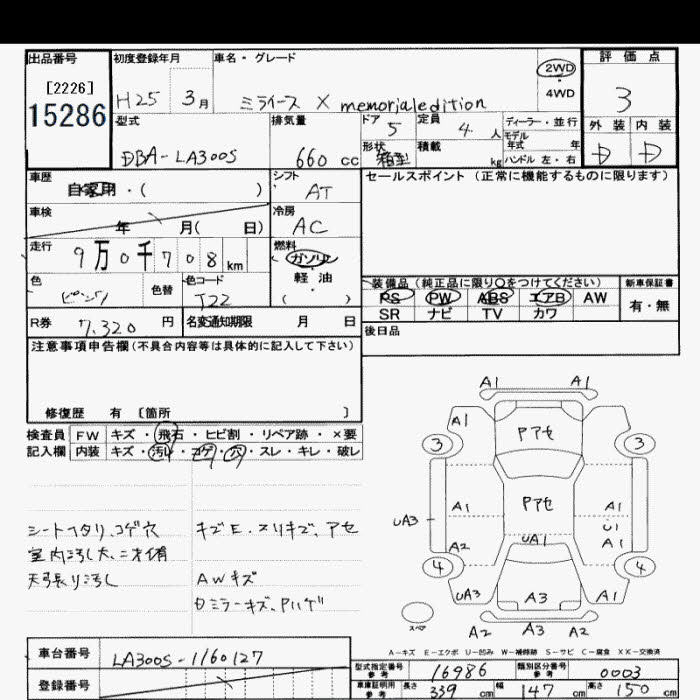 出品番号 初度登録年月 車名・グレード 2WD 4WD 評価点
[2226]
15286
H25 3月 ミライース X memorialedition 3
型式 排気量 ドア 5 定員 4 人 ディーラー・並行 外装 内装
モデル年式 年
DBA-LA300S 660 cc 形状 箱型 積載 kg ハンドル 左・右 D D
車歴 自家用・( ) シフト AT セールスポイント(正常に機能するものに限ります)
車検 年 月( 日) 冷房 AC
走行 9万0千708km 燃料 ガソリン・軽油 ( )
色 ピンク 色替 色コード T22
装備品(純正品に限り○をつけてください) 新車保証書
PS PW ABS エアB AW 有・無
SR ナビ TV カワ
R券 7,320 円 名変通知期限 月 日
後日品
注意事項申告欄(不具合内容等は具体的に記入して下さい)
修復歴 有 〔箇所 〕
検査員 FW キズ・飛石・ヒビ割・リペア跡・×要
記入欄 内装 キズ・汚れ・コゲ・穴・スレ・キレ・破レ
シートヘタリ、コゲ穴
室内汚し大、ニオイ有
天張り汚し
キズE.スリキズ、アセ
AWキズ
Dミラーキズ、Pハゲ
A1 A1
A1
Pアセ
3 3
Pアセ
A1 A1
UA3 U1
A2 UA1 A1
4 4
UA3 A3 A1
スペア
A2 A3 A2
A-キズ E-エクボ U-凹み W-補修跡 S-サビ C-腐食 XX-交換済
車台番号 LA300S-1160127
登録番号
型式指定番号 参考 16986 類別区分番号 参考 0003
車庫証明用 参考 長さ 339 cm 幅 147 cm 高さ 150 cm